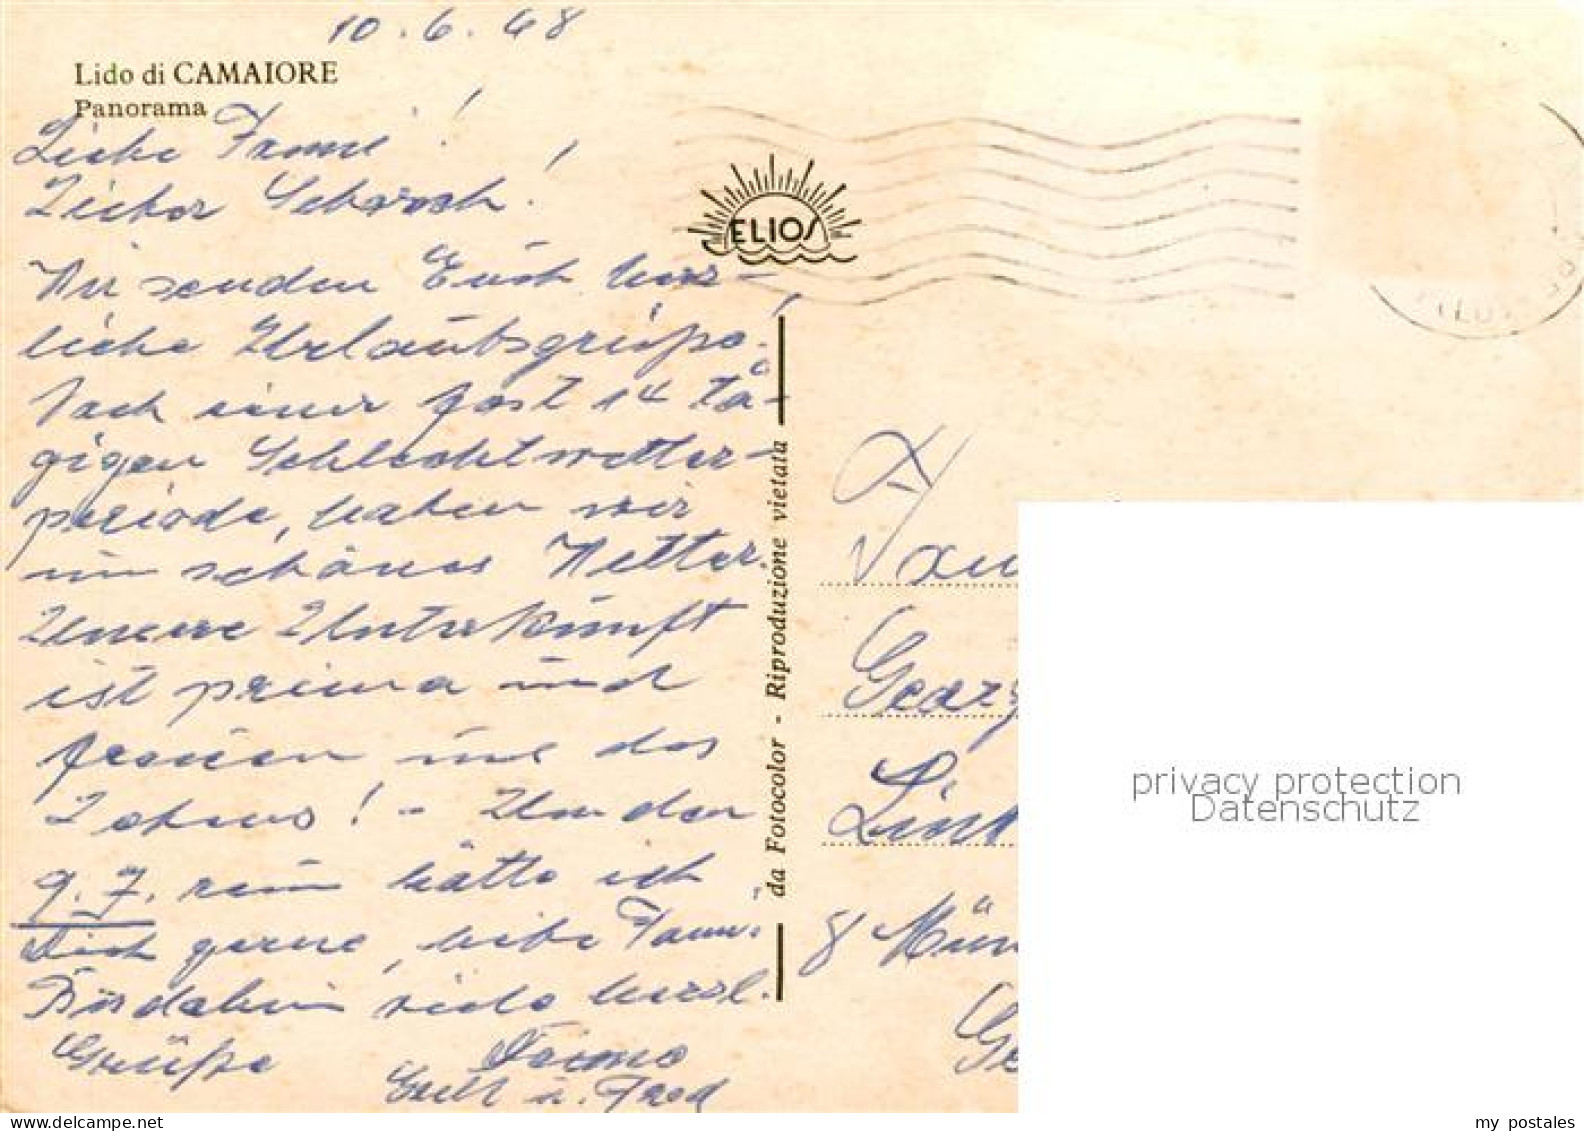 10.6.68
Lido di CAMAIORE
Panorama
Liebe Fanni!
Lieber Schorsch!
ELIOS
Wir senden Euch herz-
liche Urlaubsgrüße!
Nach einer fast 14 tä-
gigen Schlechtwetter-
periode, haben wir
nun schönes Wetter.
Unsere Unterkunft
ist prima und
freuen uns des
Lebens! - Um den
9.7. rum hätte ich
Dich gerne, liebe Fanni.
Bis dahin viele herzl.
Grüße Deine
u. Fred
da Fotocolor - Riproduzione vietata
Georg
8 Mün
privacy protection
Datenschutz
delcampe.net
my_postales